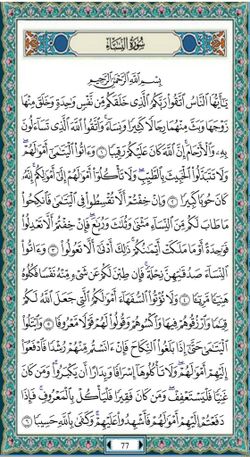 سُورَةُ النِّسَاءِ
بِسْمِ اللَّهِ الرَّحْمَٰنِ الرَّحِيمِ
يَٰٓأَيُّهَا النَّاسُ اتَّقُوا رَبَّكُمُ الَّذِي خَلَقَكُم مِّن نَّفْسٍ وَٰحِدَةٍ وَخَلَقَ مِنْهَا
زَوْجَهَا وَبَثَّ مِنْهُمَا رِجَالًا كَثِيرًا وَنِسَآءً ۚ وَاتَّقُوا اللَّهَ الَّذِي تَسَآءَلُونَ
بِهِۦ وَالْأَرْحَامَ ۚ إِنَّ اللَّهَ كَانَ عَلَيْكُمْ رَقِيبًا ١ وَءَاتُوا الْيَتَٰمَىٰٓ أَمْوَٰلَهُمْ ۖ
وَلَا تَتَبَدَّلُوا الْخَبِيثَ بِالطَّيِّبِ ۖ وَلَا تَأْكُلُوٓا أَمْوَٰلَهُمْ إِلَىٰٓ أَمْوَٰلِكُمْ ۚ إِنَّهُۥ
كَانَ حُوبًا كَبِيرًا ٢ وَإِنْ خِفْتُمْ أَلَّا تُقْسِطُوا فِي الْيَتَٰمَىٰ فَانكِحُوا
مَا طَابَ لَكُم مِّنَ النِّسَآءِ مَثْنَىٰ وَثُلَٰثَ وَرُبَٰعَ ۖ فَإِنْ خِفْتُمْ أَلَّا تَعْدِلُوا
فَوَٰحِدَةً أَوْ مَا مَلَكَتْ أَيْمَٰنُكُمْ ۚ ذَٰلِكَ أَدْنَىٰٓ أَلَّا تَعُولُوا ٣ وَءَاتُوا
النِّسَآءَ صَدُقَٰتِهِنَّ نِحْلَةً ۚ فَإِن طِبْنَ لَكُمْ عَن شَيْءٍ مِّنْهُ نَفْسًا فَكُلُوهُ
هَنِيٓـًٔا مَّرِيٓـًٔا ٤ وَلَا تُؤْتُوا السُّفَهَآءَ أَمْوَٰلَكُمُ الَّتِي جَعَلَ اللَّهُ لَكُمْ
قِيَٰمًا وَارْزُقُوهُمْ فِيهَا وَاكْسُوهُمْ وَقُولُوا لَهُمْ قَوْلًا مَّعْرُوفًا ٥ وَابْتَلُوا
الْيَتَٰمَىٰ حَتَّىٰٓ إِذَا بَلَغُوا النِّكَاحَ فَإِنْ ءَانَسْتُم مِّنْهُمْ رُشْدًا فَادْفَعُوٓا
إِلَيْهِمْ أَمْوَٰلَهُمْ ۖ وَلَا تَأْكُلُوهَآ إِسْرَافًا وَبِدَارًا أَن يَكْبَرُوا ۚ وَمَن كَانَ
غَنِيًّا فَلْيَسْتَعْفِفْ ۖ وَمَن كَانَ فَقِيرًا فَلْيَأْكُلْ بِالْمَعْرُوفِ ۚ فَإِذَا
دَفَعْتُمْ إِلَيْهِمْ أَمْوَٰلَهُمْ فَأَشْهِدُوا عَلَيْهِمْ ۚ وَكَفَىٰ بِاللَّهِ حَسِيبًا ٦
77